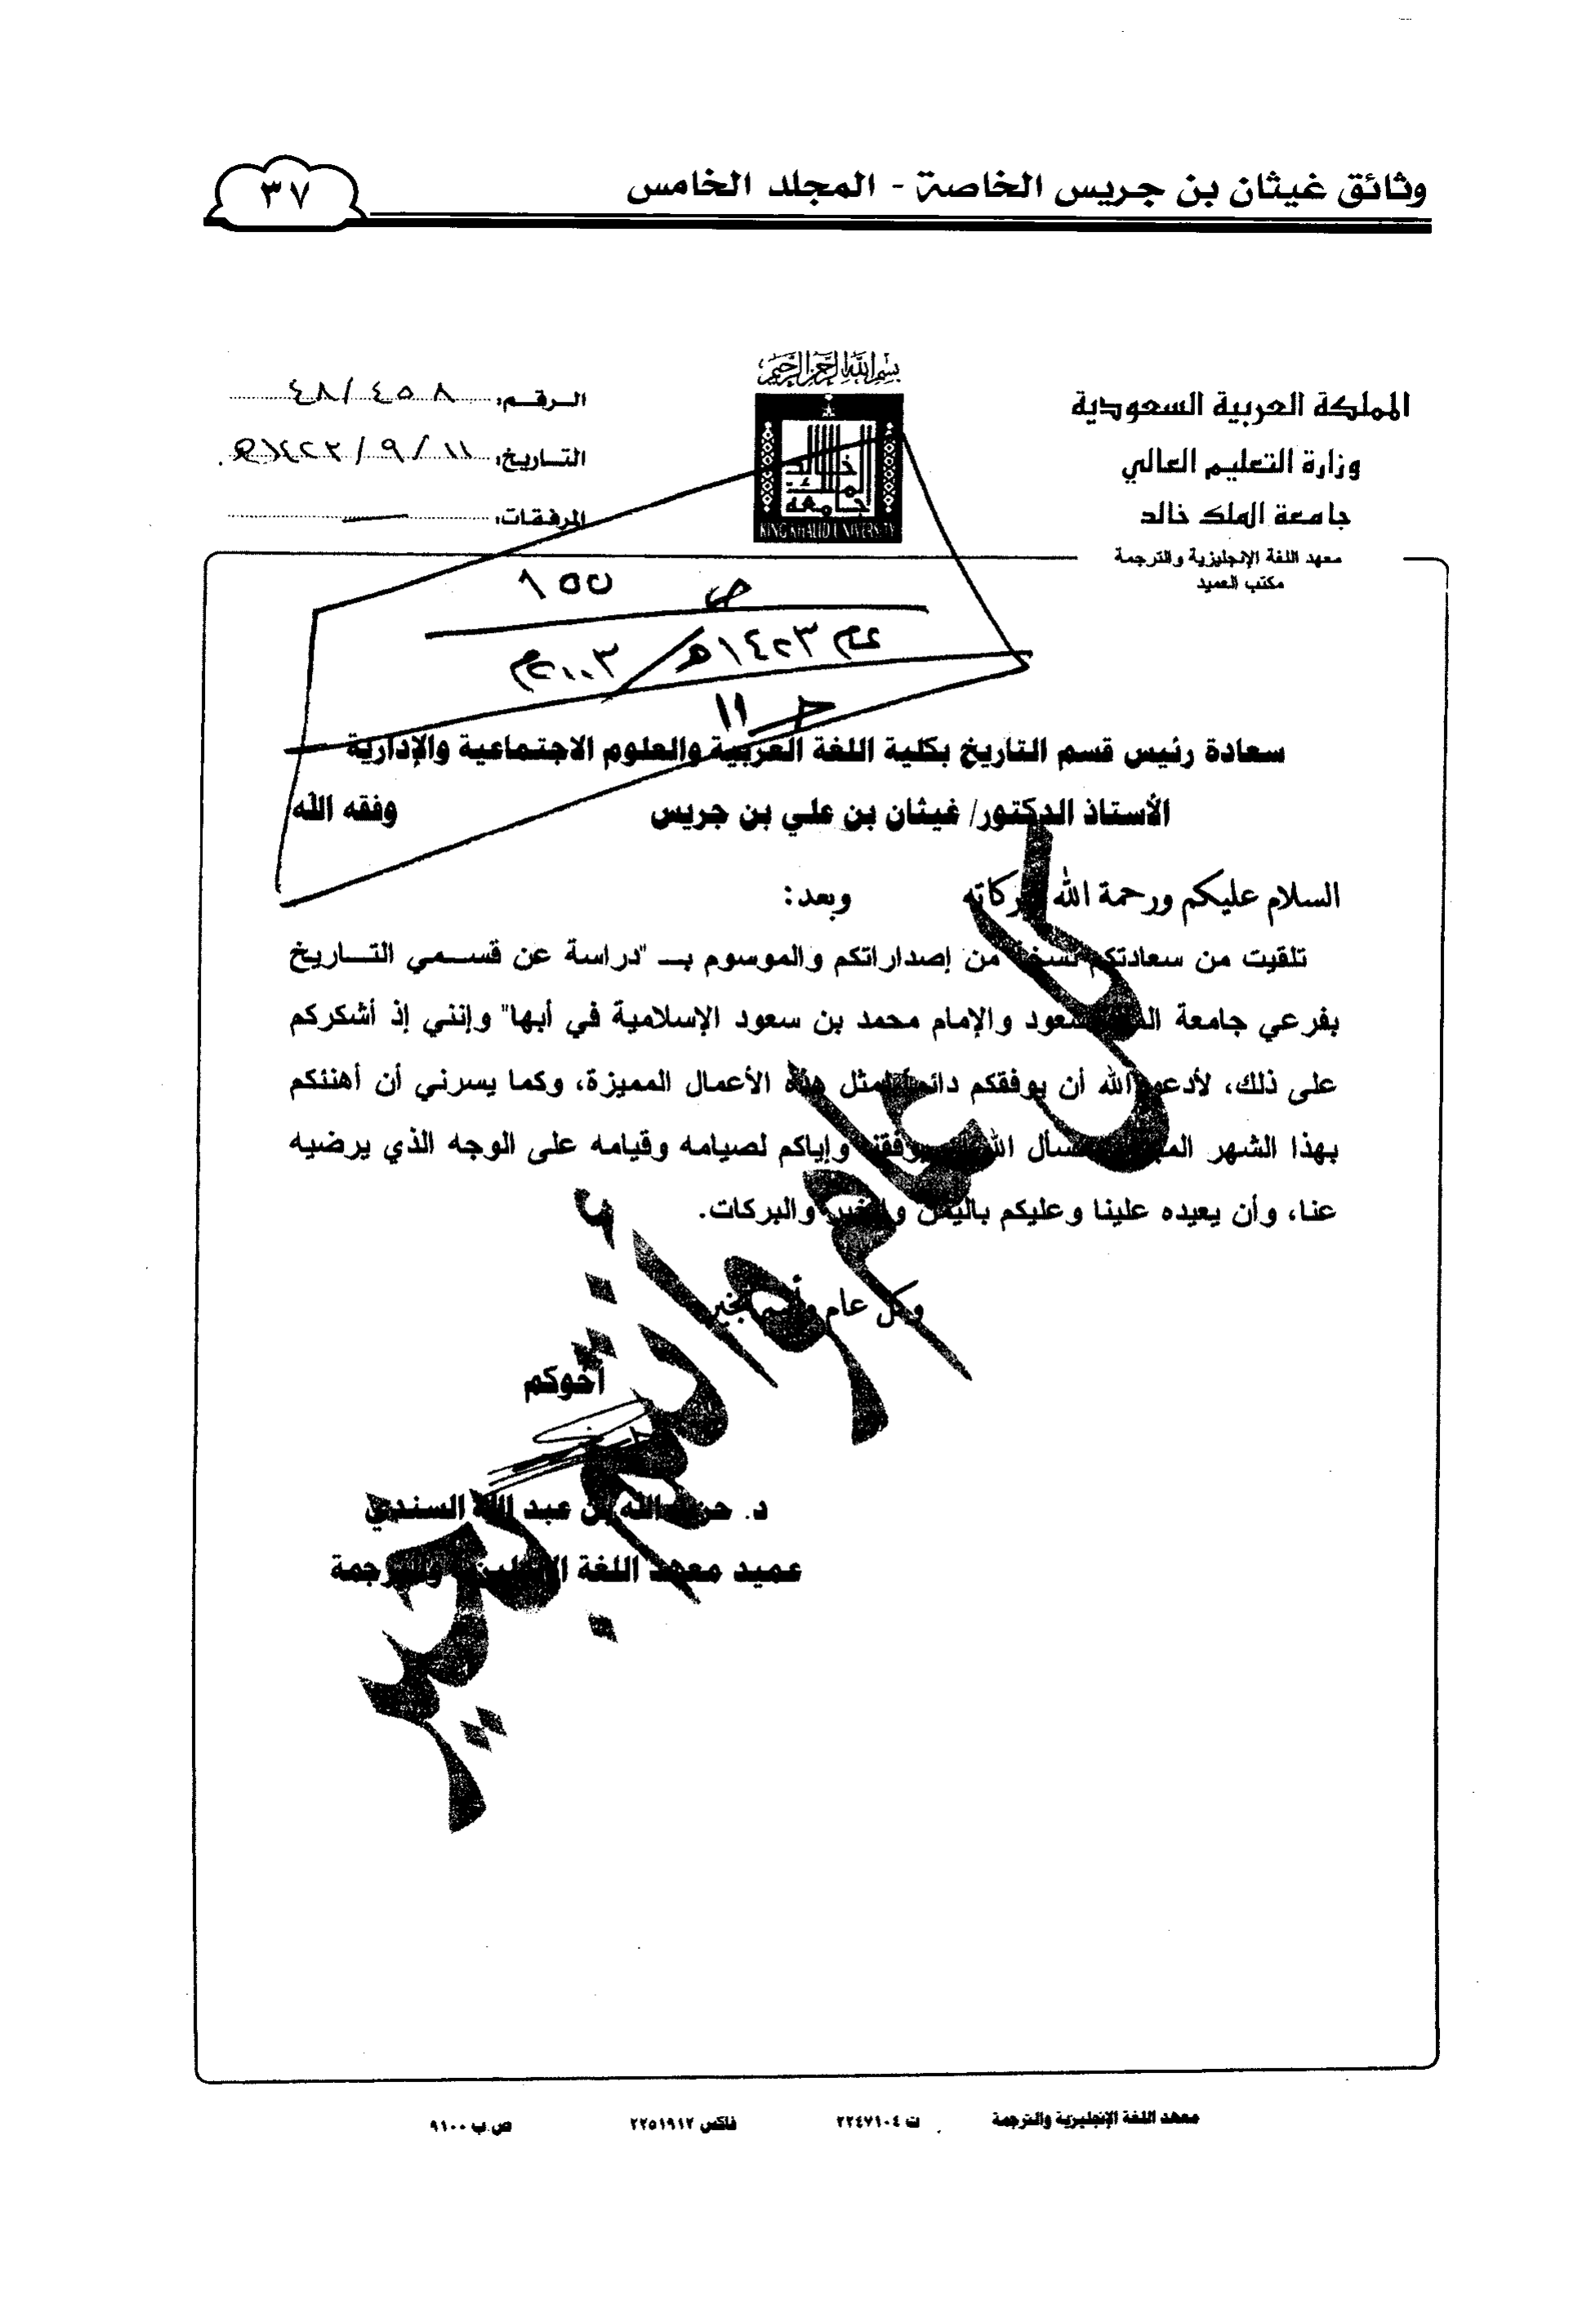 وثائق غيثان بن جريس الخاصة - المجلد الخامس
٣٧
بسم الله الرحمن الرحيم
المملكة العربية السعودية
وزارة التعليم العالي
جامعة الملك خالد
معهد اللغة الإنجليزية والترجمة
مكتب العميد
جامعة الملك خالد
KING KHALID UNIVERSITY
الرقم: ٤٨/٤٥٨
التاريخ: ١٤٢٣/٩/١١هـ
المرفقات:
ص ١٥٥
عام ١٤٢٣هـ / ٢٠٠٣م
جـ ١١
سعادة رئيس قسم التاريخ بكلية اللغة العربية والعلوم الاجتماعية والإدارية
الأستاذ الدكتور/ غيثان بن علي بن جريس وفقه الله
السلام عليكم ورحمة الله وبركاته وبعد:
تلقيت من سعادتكم نسخة من إصداراتكم والموسوم بــ "دراسة عن قسمي التاريخ
بفرعي جامعة الملك سعود والإمام محمد بن سعود الإسلامية في أبها" وإنني إذ أشكركم
على ذلك، لأدعو الله أن يوفقكم دائماً لمثل هذه الأعمال المميزة، وكما يسرني أن أهنئكم
بهذا الشهر المبارك الله وإياكم لصيامه وقيامه على الوجه الذي يرضيه
عنا، وأن يعيده علينا وعليكم باليمن والخير والبركات.
وكل عام وأنتم بخير
أخوكم
د. الله بن عبد الله السندي
عميد معهد اللغة الإنجليزية والترجمة
كل عام وأنتم بخير
معهد اللغة الإنجليزية والترجمة ت ٢٢٤٧١٠٤ فاكس ٢٢٥١٩١٢ ص.ب ٩١٠٠